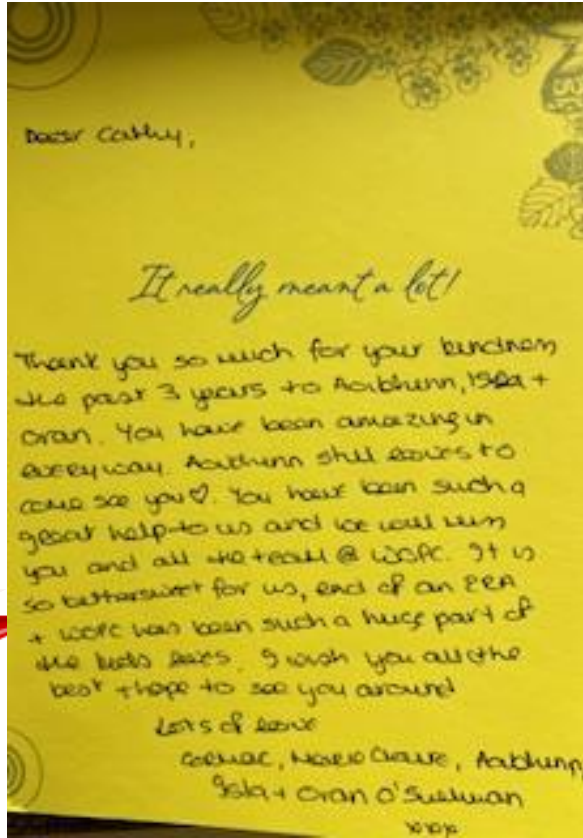 Dear Cathy,
It really meant a lot!
Thank you so much for your kindness
the past 3 years to Aoibhinn, Isla +
Oran. You have been amazing in
every way. Aoibhinn still loves to
come see you♡. You have been such a
great help to us and we will miss
you and all the team @ WOPC. It is
so bittersweet for us, end of an ERA
+ WOPC has been such a huge part of
the kids lives. I wish you all the
best + hope to see you around
Lots of love
Cormac, Marie Claire, Aoibhinn,
Isla + Oran O'Sullivan
xoxo